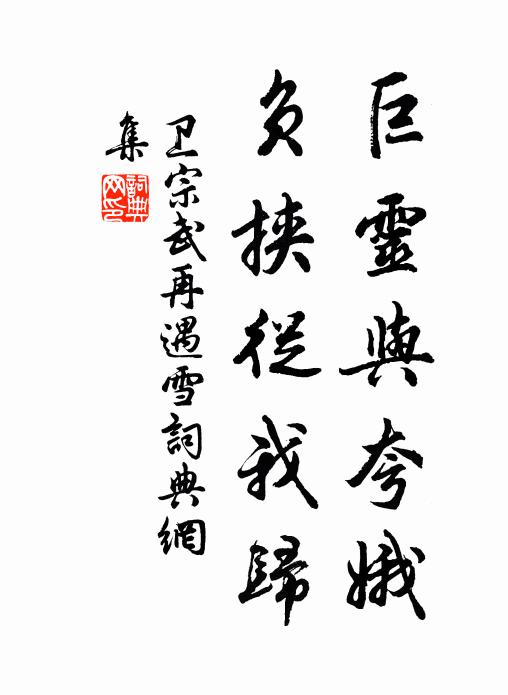 巨靈與夸娥
負挾從我歸
卫宗武再遇雪詞典網
集
詞典
网印